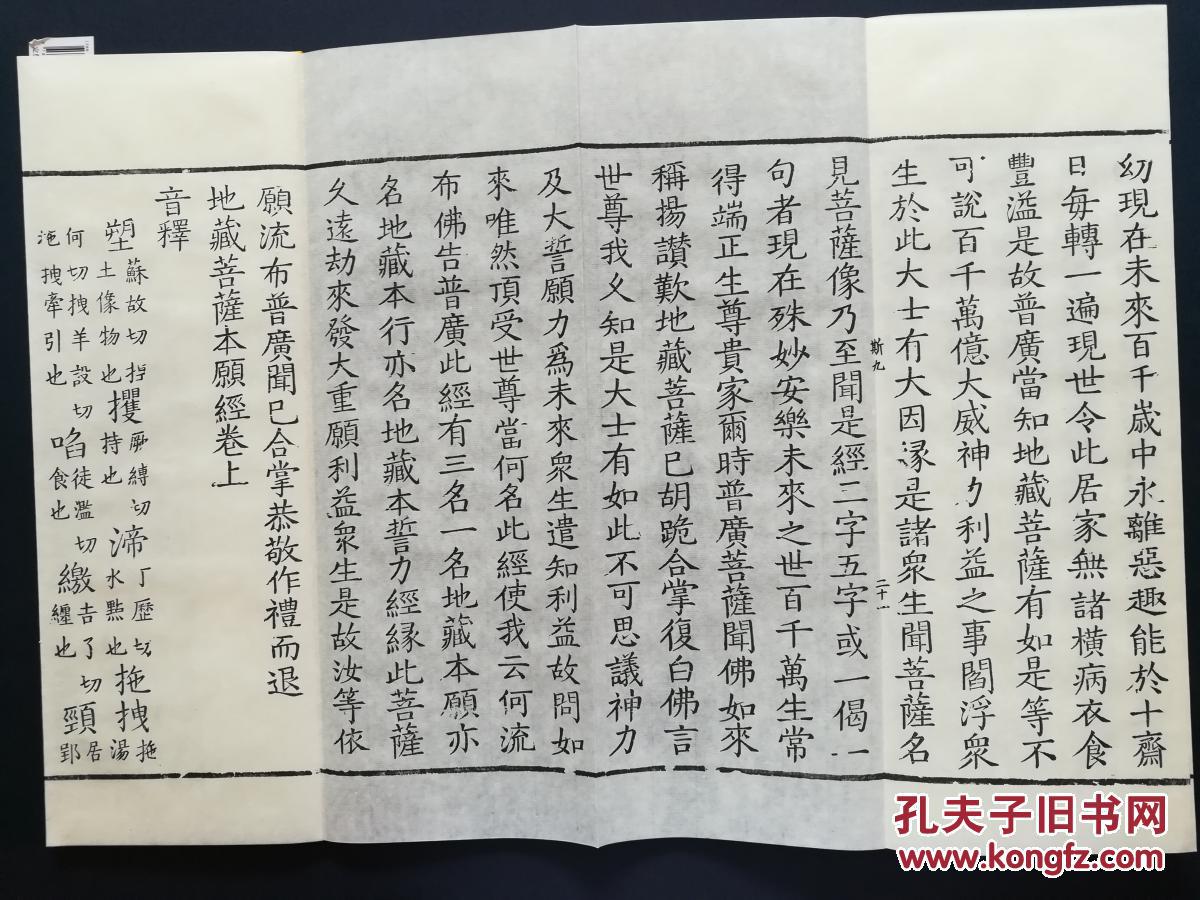 幼現在未來百千歲中永離惡趣能於十齋
日每轉一遍現世令此居家無諸橫病衣食
豐溢是故普廣當知地藏菩薩有如是等不
可說百千萬億大威神力利益之事閻浮衆
生於此大士有大因緣是諸衆生聞菩薩名
斯九
二十一
見菩薩像乃至聞是經三字五字或一偈一
句者現在殊妙安樂未來之世百千萬生常
得端正生尊貴家爾時普廣菩薩聞佛如來
稱揚讚歎地藏菩薩已胡跪合掌復白佛言
世尊我久知是大士有如此不可思議神力
及大誓願力爲未來衆生遣知利益故問如
來唯然頂受世尊當何名此經使我云何流
布佛告普廣此經有三名一名地藏本願亦
名地藏本行亦名地藏本誓力經緣此菩薩
久遠劫來發大重願利益衆生是故汝等依
願流布普廣聞已合掌恭敬作禮而退
地藏菩薩本願經卷上
音釋
塑 蘇故切捏土像物也 攫 厥縛切持也 渧 丁歷切水點也 拖拽 拖湯
何切拽羊設切拖拽牽引也 啗 徒濫切食也 繳 吉了切纏也 頸 居郢
孔夫子旧书网
www.kongfz.com